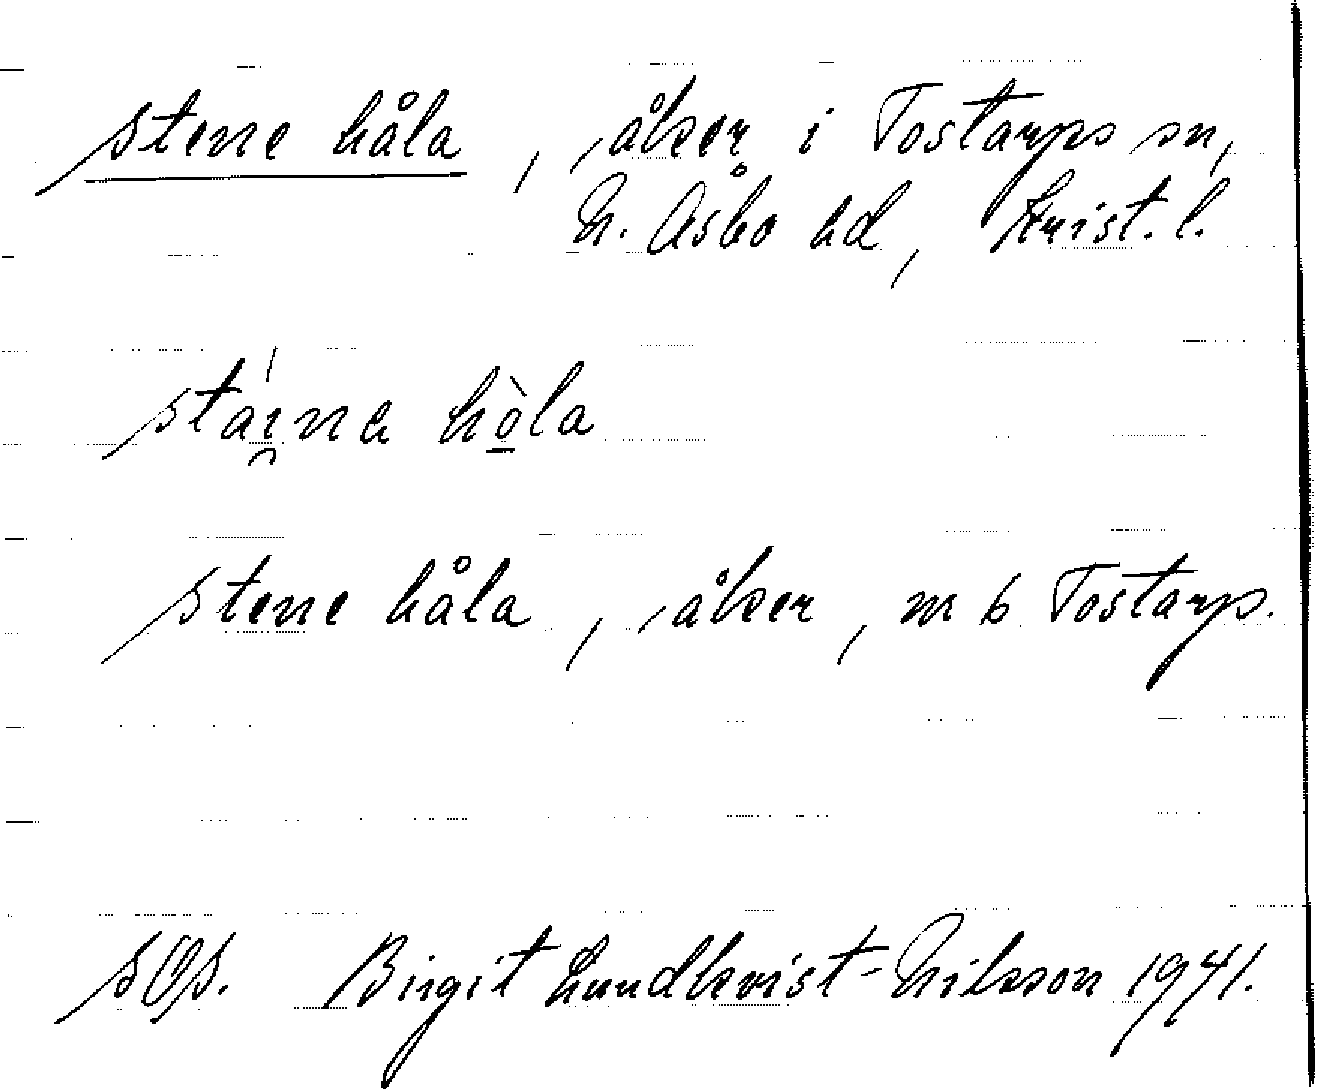 stene håla, åker i Tostarps sn,
N. Åsbo hd, Krist. l.
stai̯na hò̱la
stene håla, åker, m b Tostarp.
SOS. Birgit Lundkvist-Nilsson 1941.